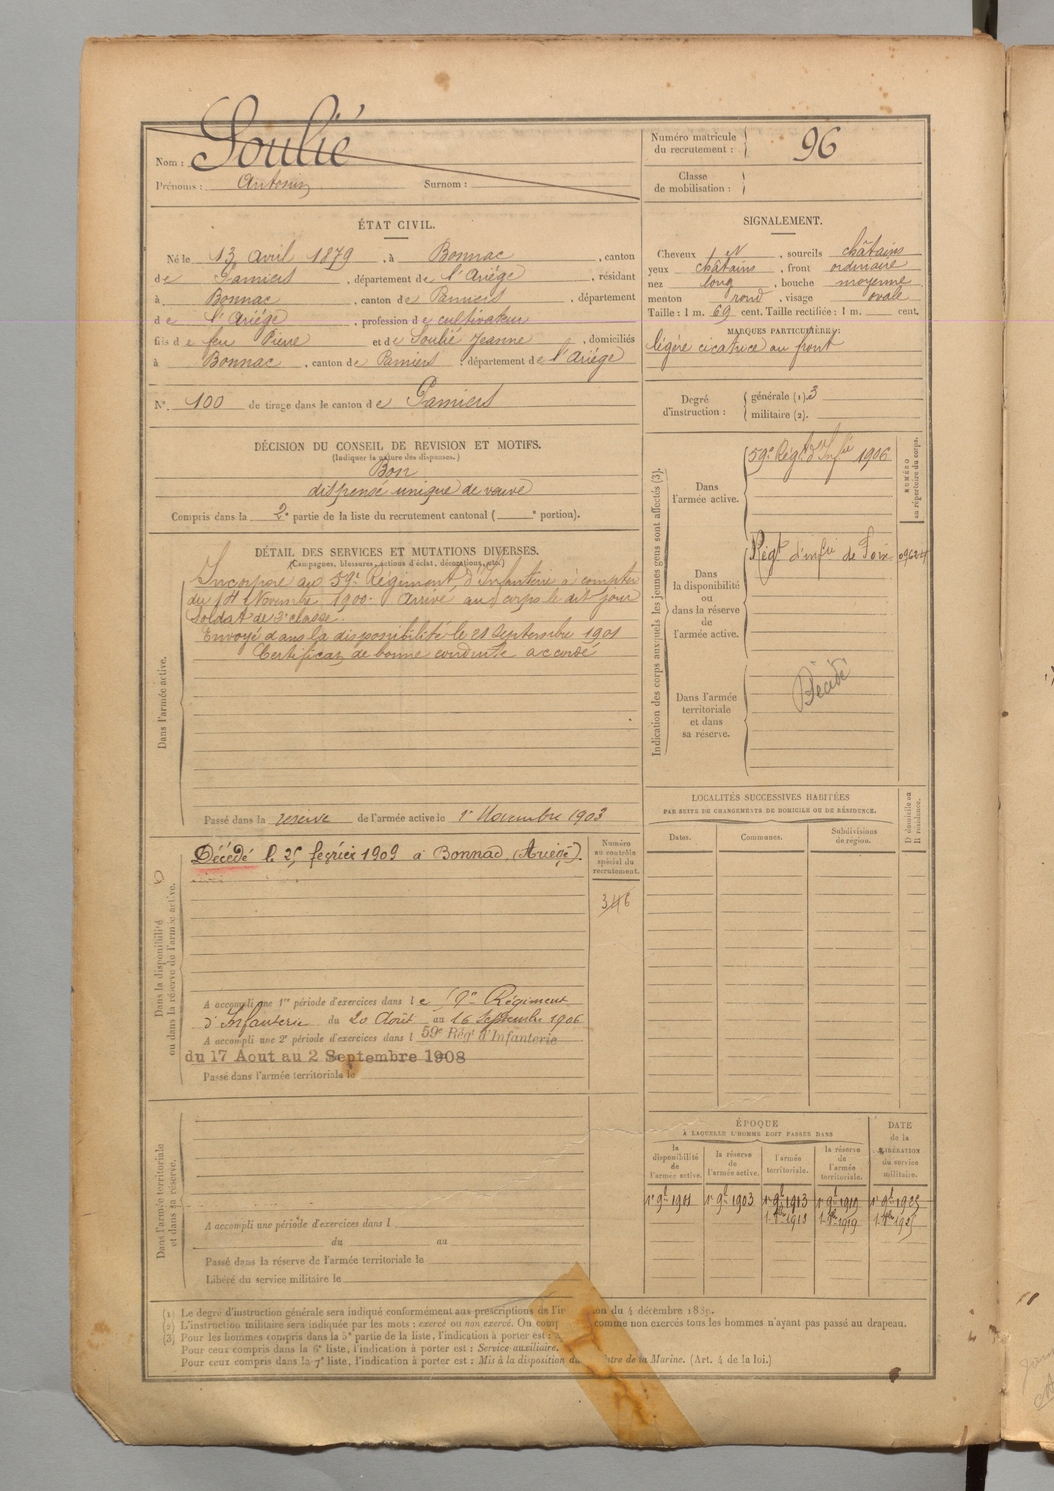 Nom : Soulié
Prénoms : Antonin Surnom :
Numéro matricule du recrutement : 96
Classe de mobilisation :
ÉTAT CIVIL.
Né le 13 Avril 1879, à Bonnac, canton
de Pamiers, département de l'Ariège, résidant
à Bonnac, canton de Pamiers, département
de l'Ariège, profession de cultivateur
fils de feu Pierre et de Soulié Jeanne, domiciliés
à Bonnac, canton de Pamiers, département de l'Ariège
N°. 100 de tirage dans le canton de Pamiers
SIGNALEMENT.
Cheveux N, sourcils châtains
yeux châtains, front ordinaire
nez long, bouche moyenne
menton rond, visage ovale
Taille : 1 m. 69 cent. Taille rectifiée : 1 m. cent.
MARQUES PARTICULIÈRES :
légère cicatrice au front
Degré d'instruction :
générale (1). 3
militaire (2).
DÉCISION DU CONSEIL DE REVISION ET MOTIFS.
(Indiquer la nature des dispenses.)
Bon
dispensé unique de veuve
Compris dans la 2e partie de la liste du recrutement cantonal ( e portion).
DÉTAIL DES SERVICES ET MUTATIONS DIVERSES.
(Campagnes, blessures, actions d'éclat, décorations, etc.)
Dans l'armée active.
Incorporé au 59e Régiment d'Infanterie à compter
du Novembre 1900. Arrivé au corps le dit jour
soldat de 2e classe.
Envoyé dans la disponibilité le 21 septembre 1901
Certificat de bonne conduite accordé
Passé dans la réserve de l'armée active le 1er Novembre 1903
Indication des corps auxquels les jeunes gens sont affectés (3).
NUMÉRO au répertoire du corps.
Dans l'armée active.
59e Régt d'Infie 1906
Dans la disponibilité ou dans la réserve de l'armée active.
Régt d'infie de Foix
Dans l'armée territoriale et dans sa réserve.
Décédé
Dans la disponibilité ou dans la réserve de l'armée active.
Décédé le 25 février 1909 à Bonnac, (Ariège).
Numéro au contrôle spécial du recrutement.
346
A accompli une 1re période d'exercices dans le Régiment
d'Infanterie du 20 Août au 16 Septembre 1906
A accompli une 2e période d'exercices dans l 59e Régt d'Infanterie
du 17 Aout au 2 Septembre 1908
Passé dans l'armée territoriale le
LOCALITÉS SUCCESSIVES HABITÉES
PAR SUITE DE CHANGEMENTS DE DOMICILE OU DE RÉSIDENCE.
Dates. Communes. Subdivisions de région.
D domicile ou R résidence.
Dans l'armée territoriale et dans sa réserve.
A accompli une période d'exercices dans l
du au
Passé dans la réserve de l'armée territoriale le
Libéré du service militaire le
ÉPOQUE
À LAQUELLE L'HOMME DOIT PASSER DANS
la disponibilité de l'armée active.
la réserve de l'armée active.
l'armée territoriale.
la réserve de l'armée territoriale.
DATE de la LIBÉRATION du service militaire.
1er 9bre 1903 1er 9bre 1913 1er 9bre 1919 1er 9bre 1925
(1) Le degré d'instruction générale sera indiqué conformément aux prescriptions de l'in on du 4 décembre 1889.
(2) L'instruction militaire sera indiquée par les mots : exercé ou non exercé. On comp comme non exercés tous les hommes n'ayant pas passé au drapeau.
(3) Pour les hommes compris dans la 5e partie de la liste, l'indication à porter est :
Pour ceux compris dans la 6e liste, l'indication à porter est : Service auxiliaire.
Pour ceux compris dans la 7e liste, l'indication à porter est : Mis à la disposition du istre de la Marine. (Art. 4 de la loi.)